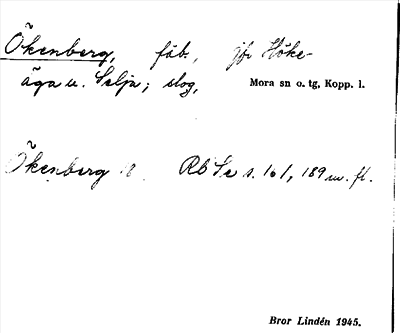 Ökenberg, fäb., jfr Höke-
äga u. Selja; skog,
Mora sn o. tg, Kopp. l.
Ökenberg Rb Se s. 161, 189 m. fl.
Bror Lindén 1945.